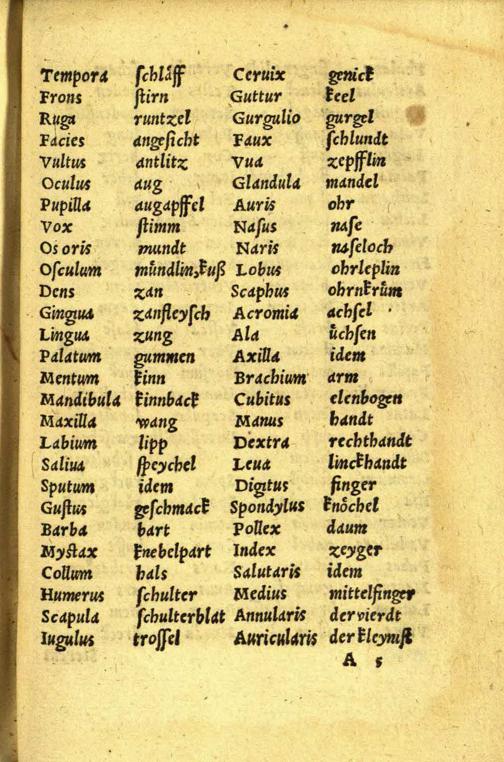 Tempora ſchlåff Ceruix genick
Frons ſtirn Guttur keel
Ruga runtzel Gurgulio gurgel
Facies angeſicht Faux ſchlundt
Vultus antlitz Vua zepfflin
Oculus aug Glandula mandel
Pupilla augapffel Auris ohr
Vox ſtimm Naſus naſe
Os oris mundt Naris naſeloch
Oſculum mündlin,kuß Lobus ohrleplin
Dens zan Scaphus ohrnkrům
Gingiua zanfleyſch Acromia achſel
Lingua zung Ala ůchſen
Palatum gummen Axilla idem
Mentum kinn Brachium arm
Mandibula kinnback Cubitus elenbogen
Maxilla wang Manus handt
Labium lipp Dextra rechthandt
Saliua ſpeychel Leua linckhandt
Sputum idem Digitus finger
Guſtus geſchmack Spondylus knöchel
Barba bart Pollex daum
Myſtax knebelpart Index zeyger
Collum hals Salutaris idem
Humerus ſchulter Medius mittelfinger
Scapula ſchulterblat Annularis der vierdt
Iugulus troſſel Auricularis der kleynſt
A 5